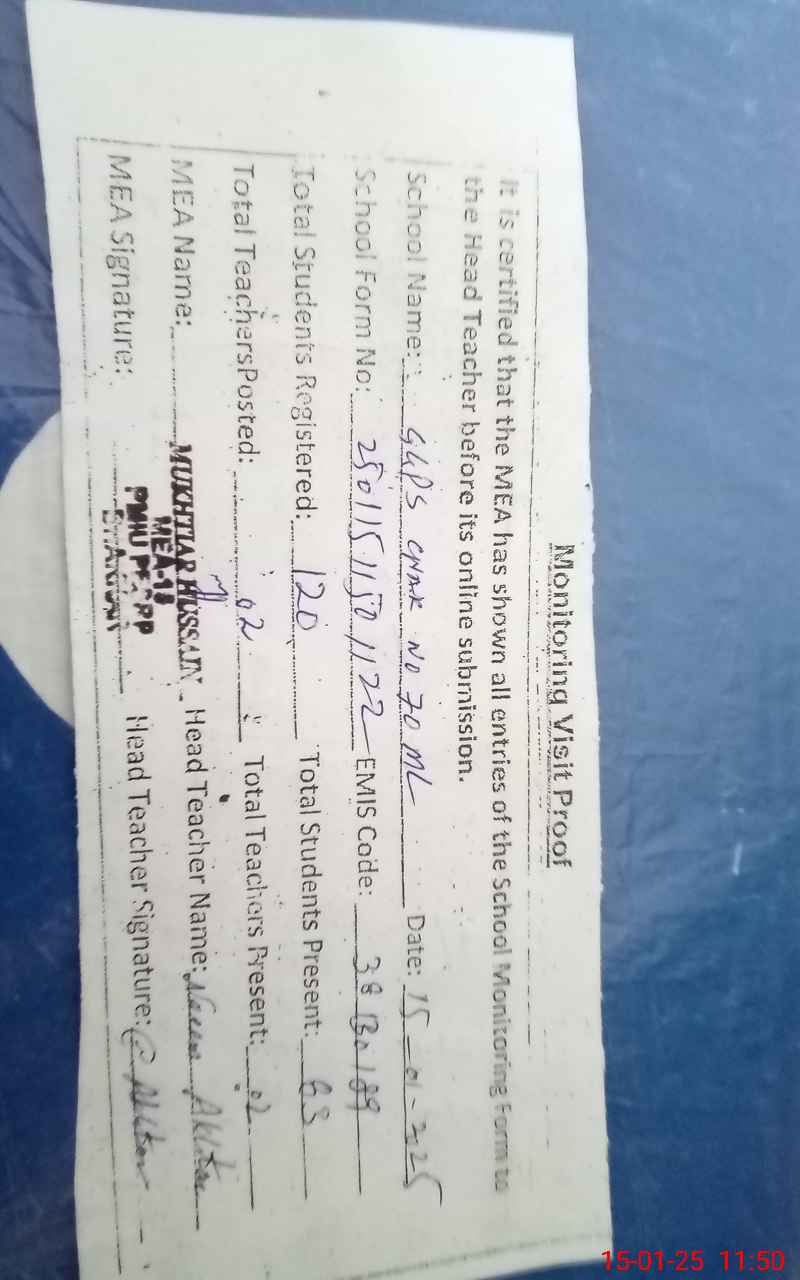 Monitoring Visit Proof
It is certified that the MEA has shown all entries of the School Monitoring Form to
the Head Teacher before its online submission.
School Name: GGPS CHAK NO 70 ML Date: 15-01-2025
School Form No: 25011511501122 EMIS Code: 38130189
Total Students Registered: 120 Total Students Present: 63
Total Teachers Posted: 02 Total Teachers Present: 02
MEA Name: MUKHTIAR HUSSAIN Head Teacher Name: Akhtar
MEA-18
MEA Signature: PMIU PESRP Head Teacher Signature:
BHAKKAR
15-01-25 11:50